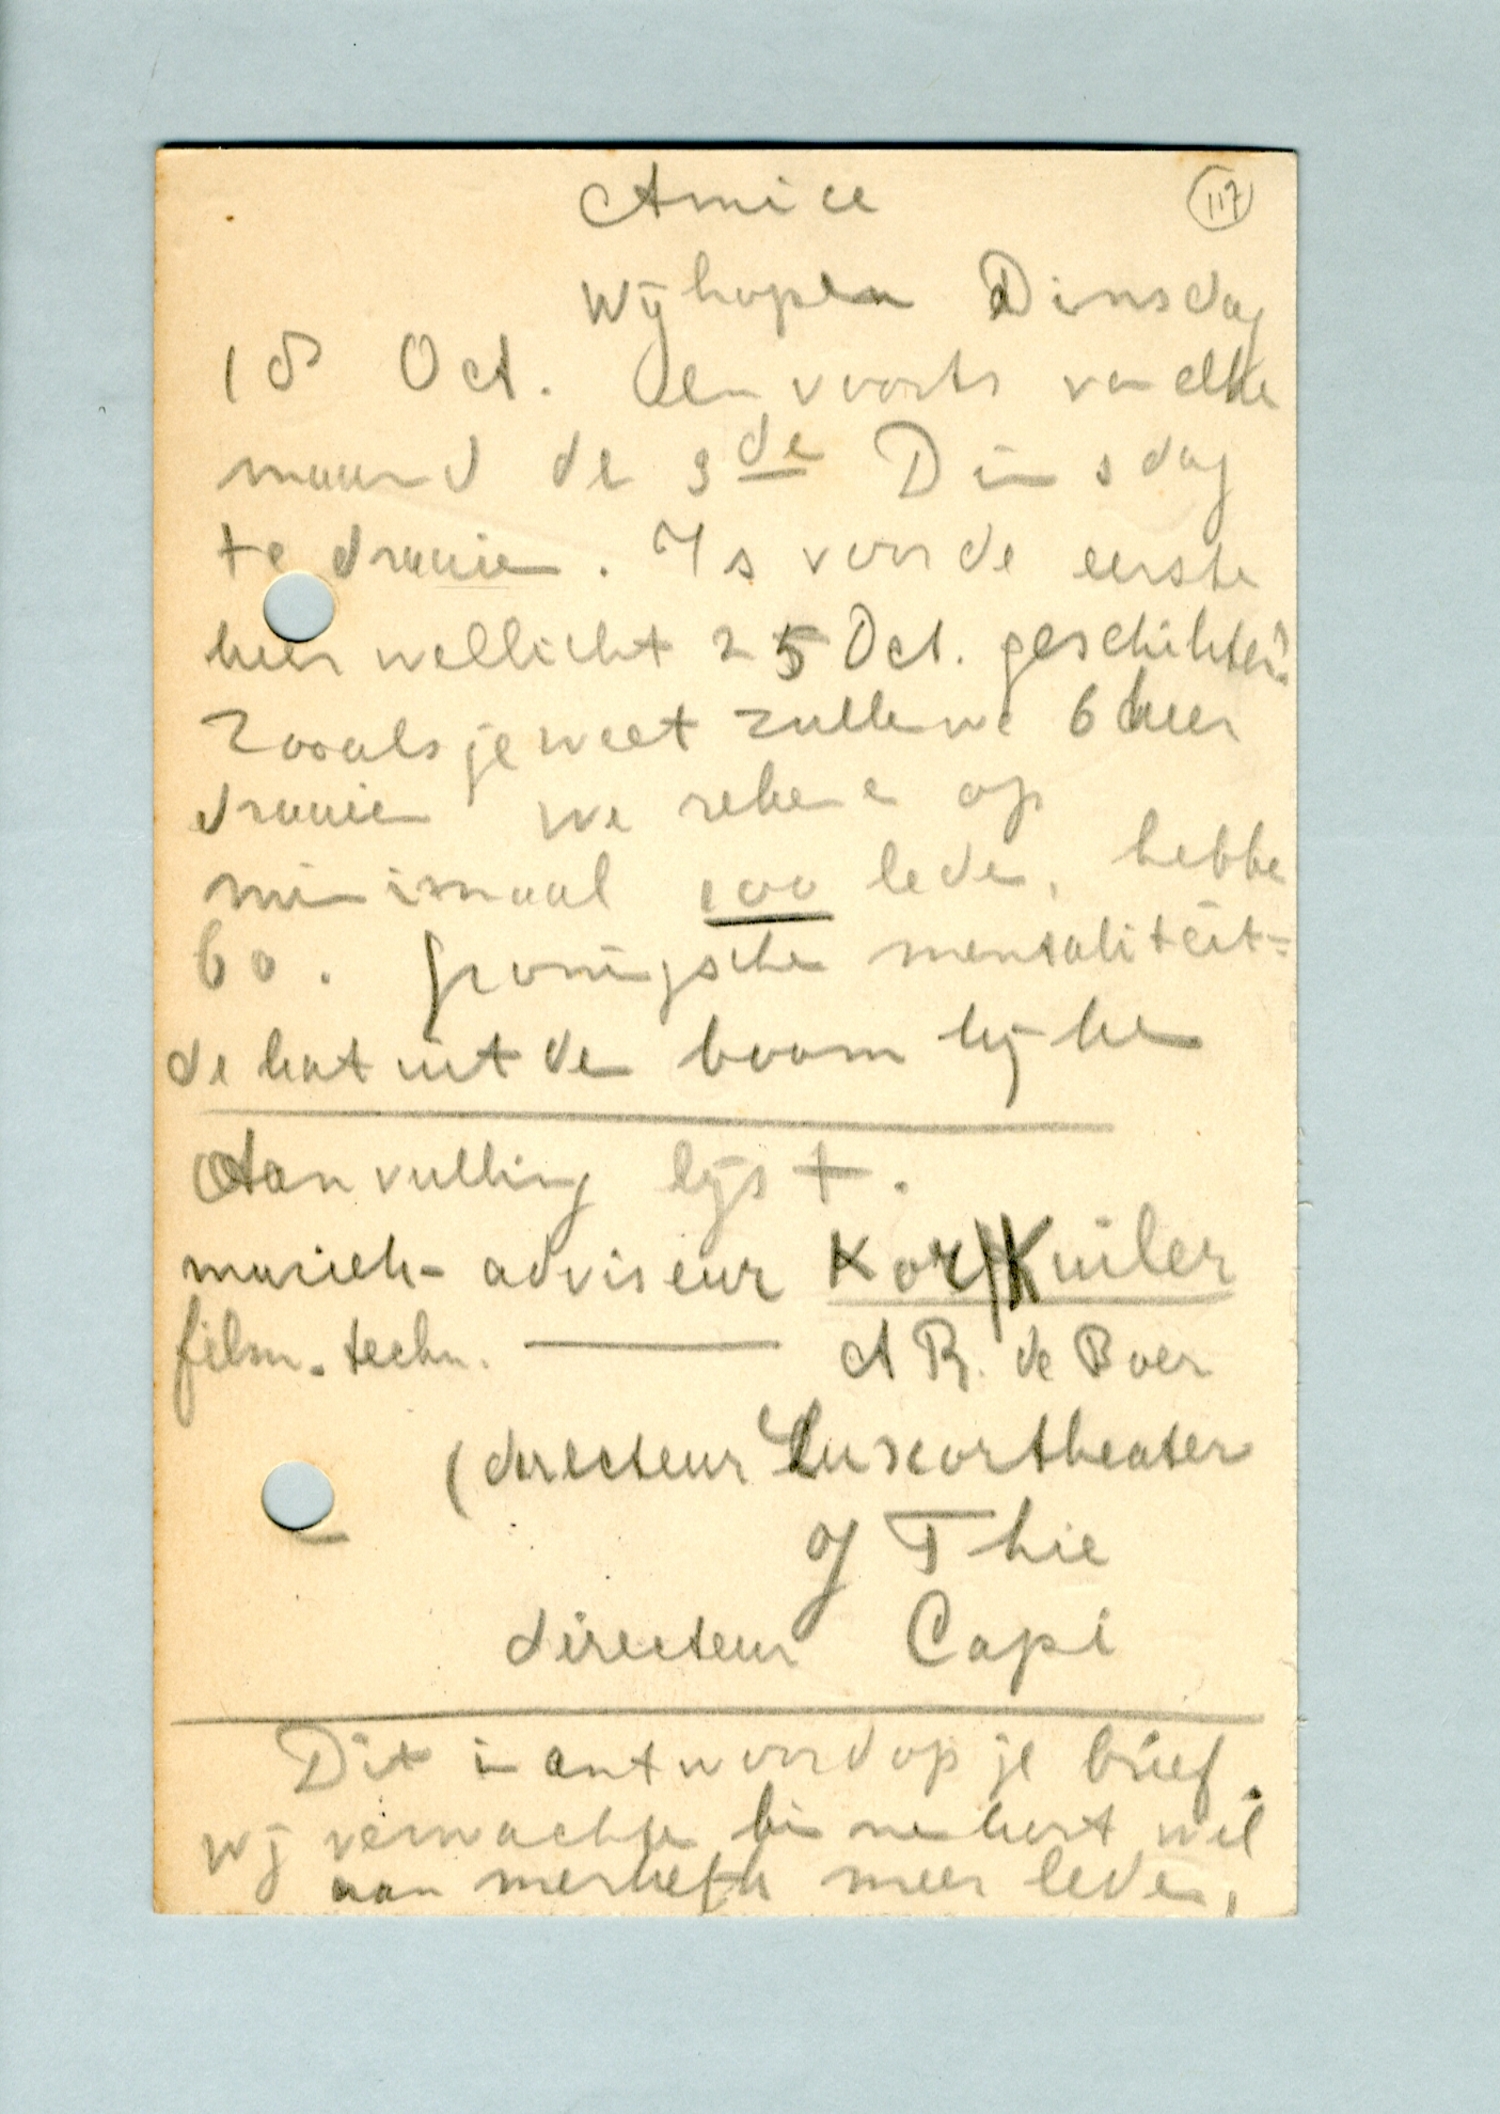 Amice
117
Wij hopen Dinsdag
18 Oct. en voorts van elke
maand de 3de Dinsdag
te draaien. Is voor de eerste
keer wellicht 25 Oct. geschikter?
Zooals je weet zullen we 6 keer
draaien we rekenen op
minimaal 100 leden, hebben
60. Groningsche mentaliteit =
de kat uit de boom kijken
Aanvulling lijst.
muziek-adviseur Kor Kuiler
film-techn. —— A R. de Boer
(directeur Luxortheater
of Thie
directeur Capi
Dit in antwoord op je brief.
Wij verwachten binnenkort wel
aanmerkelijk meer leden,